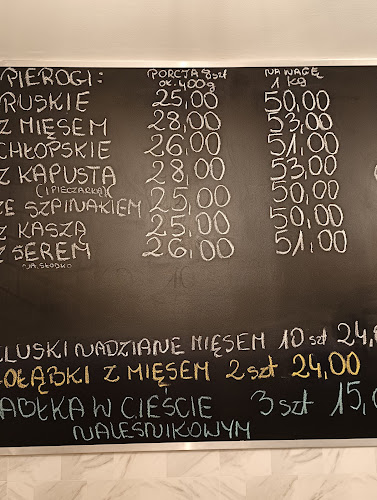 PIEROGI: PORCJA 8szt NA WAGĘ
ok. 400g 1 kg
RUSKIE 25,00 50,00
Z MIĘSEM 28,00 53,00
CHŁOPSKIE 26,00 51,00
Z KAPUSTĄ 28,00 53,00
(I PIECZARKĄ)
ZE SZPINAKIEM 25,00 50,00
Z KASZĄ 25,00 50,00
Z SEREM 26,00 51,00
NA SŁODKO
LUSKI NADZIANE MIĘSEM 10 szt 24,
OŁĄBKI Z MIĘSEM 2 szt 24,00
ABŁKA W CIEŚCIE 3 szt 15,0
NALEŚNIKOWYM